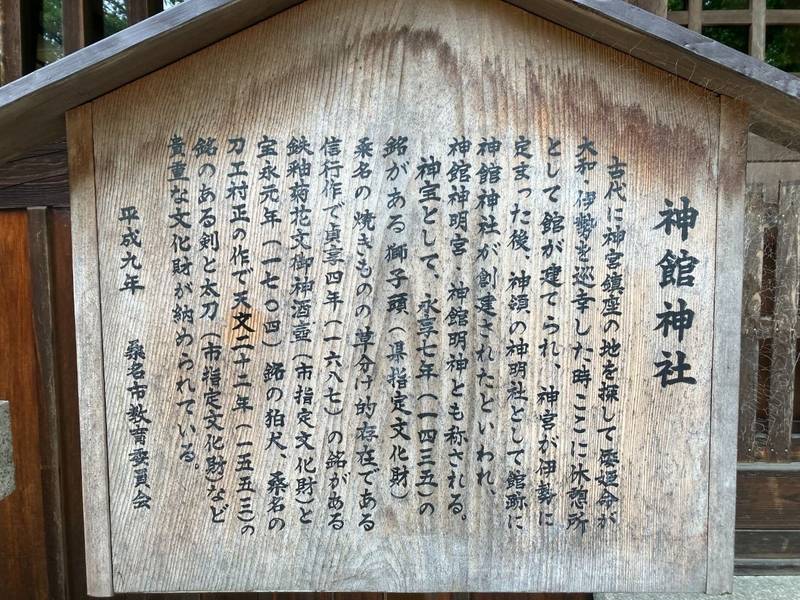 神館神社
古代に神宮鎮座の地を探して倭姫命が
大和、伊勢を巡幸した時ここに休憩所
として館が建てられ、神宮が伊勢に
定まった後、神領の神明社として館跡に
神館神社が創建されたといわれ、
神館神明宮、神館明神とも称される。
神宝として、永享七年(一四三五)の
銘がある獅子頭(県指定文化財)
桑名の焼きものの草分け的存在である
信行作で貞享四年(一六八七)の銘がある
鉄釉菊花文御神酒壺(市指定文化財)と
宝永元年(一七〇四)銘の狛犬、桑名の
刀工村正の作で天文二十二年(一五五三)の
銘のある剣と太刀(市指定文化財)など
貴重な文化財が納められている。
平成九年 桑名市教育委員会